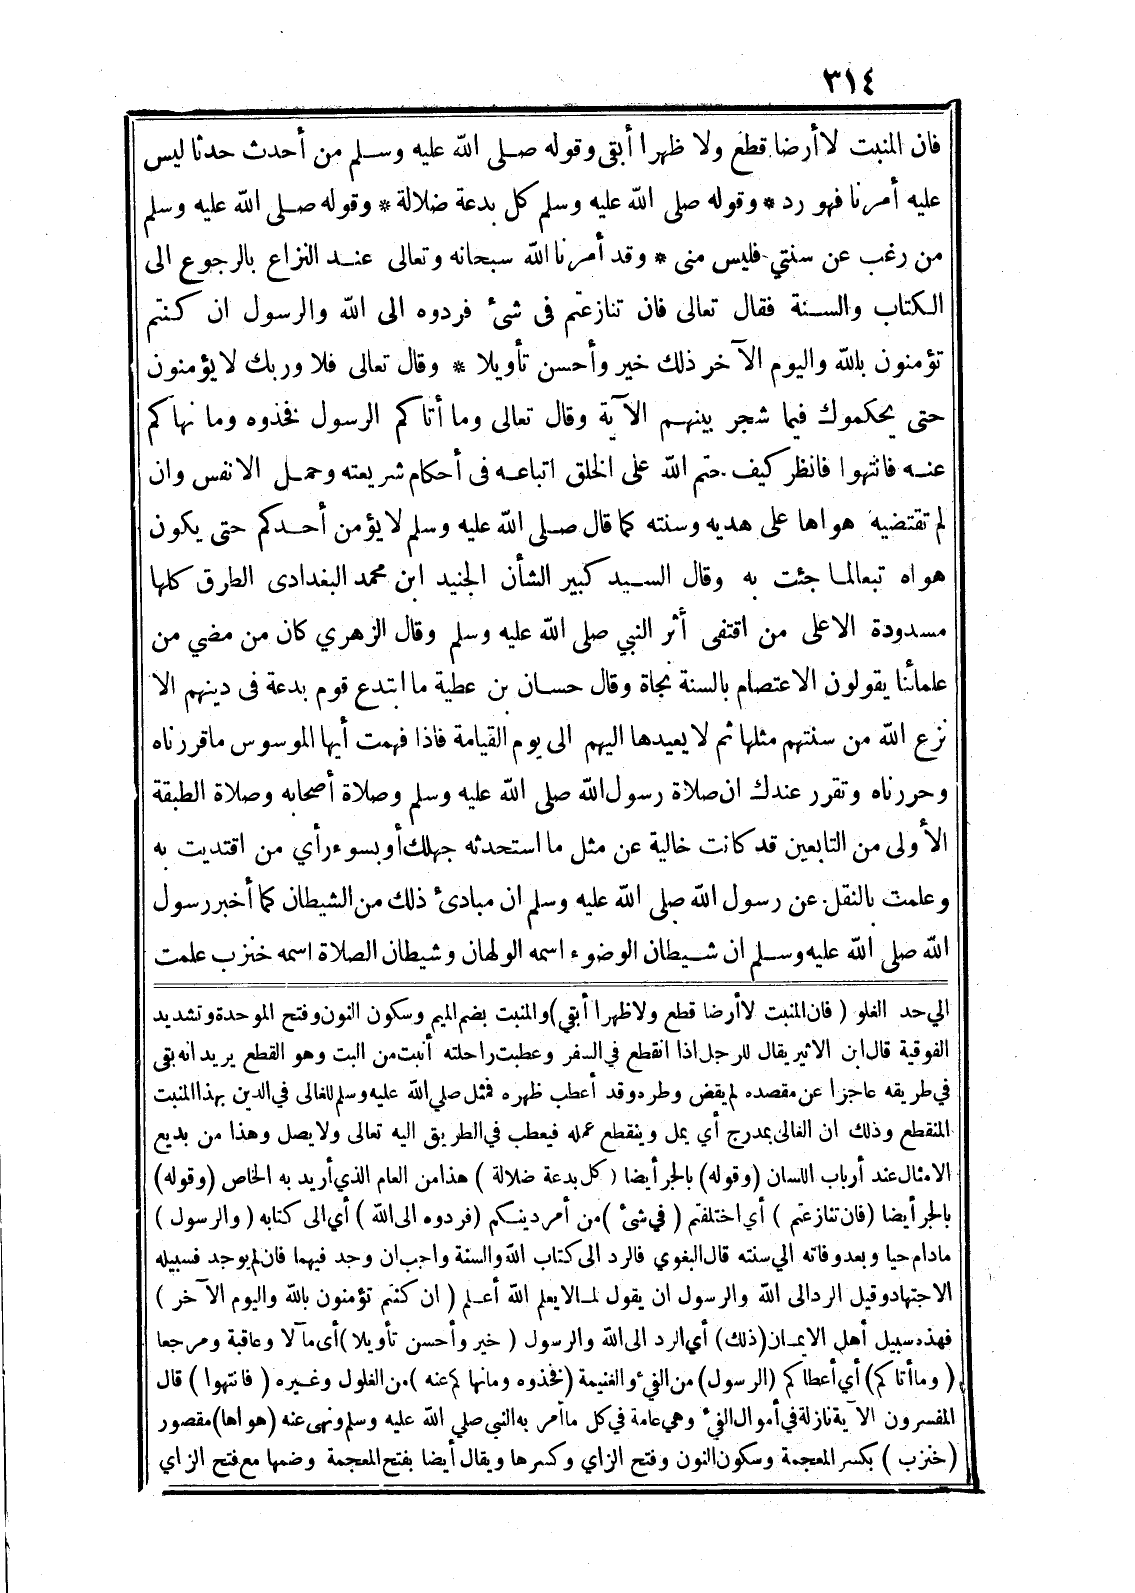 ٣١٤
فان المنبت لا أرضا قطع ولا ظهرا أبقى وقوله صلى الله عليه وسلم من أحدث حدثا ليس
عليه أمرنا فهو رد * وقوله صلى الله عليه وسلم كل بدعة ضلالة * وقوله صلى الله عليه وسلم
من رغب عن سنتي فليس منى * وقد أمرنا الله سبحانه وتعالى عند النزاع بالرجوع الى
الكتاب والسنة فقال تعالى فان تنازعتم فى شئ فردوه الى الله والرسول ان كنتم
تؤمنون بالله واليوم الآخر ذلك خير وأحسن تأويلا * وقال تعالى فلا وربك لا يؤمنون
حتى يحكموك فيما شجر بينهم الآية وقال تعالى وما أتاكم الرسول فخذوه وما نهاكم
عنه فانتهوا فانظر كيف حتم الله على الخلق اتباعه فى أحكام شريعته وحمل الانفس وان
لم تقتضيه هواها على هديه وسنته كما قال صلى الله عليه وسلم لا يؤمن أحدكم حتى يكون
هواه تبعا لما جئت به وقال السيد كبير الشأن الجنيد ابن محمد البغدادى الطرق كلها
مسدودة الا على من اقتفى أثر النبي صلى الله عليه وسلم وقال الزهري كان من مضي من
علمائنا يقولون الاعتصام بالسنة نجاة وقال حسان بن عطية ما ابتدع قوم بدعة فى دينهم الا
نزع الله من سنتهم مثلها ثم لا يعيدها اليهم الى يوم القيامة فاذا فهمت أيها الموسوس ما قررناه
وحررناه وتقرر عندك ان صلاة رسول الله صلى الله عليه وسلم وصلاة أصحابه وصلاة الطبقة
الأولى من التابعين قد كانت خالية عن مثل ما استحدثه جهلك أو بسوء رأي من اقتديت به
وعلمت بالنقل عن رسول الله صلى الله عليه وسلم ان مبادئ ذلك من الشيطان كما أخبر رسول
الله صلى الله عليه وسلم ان شيطان الوضوء اسمه الولهان وشيطان الصلاة اسمه خنزب علمت
الي حد الغلو ( فان المنبت لا أرضا قطع ولا ظهرا أبقي ) والمنبت بضم الميم وسكون النون وفتح الموحدة وتشديد
الفوقية قال ابن الاثير يقال للرجل اذا انقطع في السفر وعطبت راحلته أنبت من البت وهو القطع يريد انه بقى
في طريقه عاجزا عن مقصده لم يقض وطره وقد أعطب ظهره فمثل صلي الله عليه وسلم للغالى في الدين بهذا المنبت
المنقطع وذلك ان الغالى بمدرج أي يمل وينقطع عمله فيعطب في الطريق اليه تعالى ولا يصل وهذا من بديع
الامثال عند أرباب اللسان (وقوله) بالجر أيضا ( كل بدعة ضلالة ) هذا من العام الذي أريد به الخاص (وقوله)
بالجر أيضا (فان تنازعتم ) أي اختلفتم ( في شئ ) من أمر دينكم (فردوه الى الله ) أي الى كتابه ( والرسول )
مادام حيا وبعد وفاته الي سنته قال البغوي فالرد الى كتاب الله والسنة واجب ان وجد فيهما فان لم يوجد فسبيله
الاجتهاد وقيل الرد الى الله والرسول ان يقول لما لا يعلم الله أعلم ( ان كنتم تؤمنون بالله واليوم الآخر )
فهذه سبيل أهل الايمان (ذلك) أي الرد الى الله والرسول ( خير وأحسن تأويلا ) أى مآلا وعاقبة ومرجعا
( وما أتاكم ) أي أعطاكم (الرسول) من الفئ والغنيمة (فخذوه وما نهاكم عنه ) من الغلول وغيره ( فانتهوا ) قال
المفسرون الآية نازلة في أموال الفئ وهي عامة في كل ما أمر به النبي صلي الله عليه وسلم ونهى عنه (هواها) مقصور
(خنزب ) بكسر المعجمة وسكون النون وفتح الزاي وكسرها ويقال أيضا بفتح المعجمة وضمها مع فتح الزاي